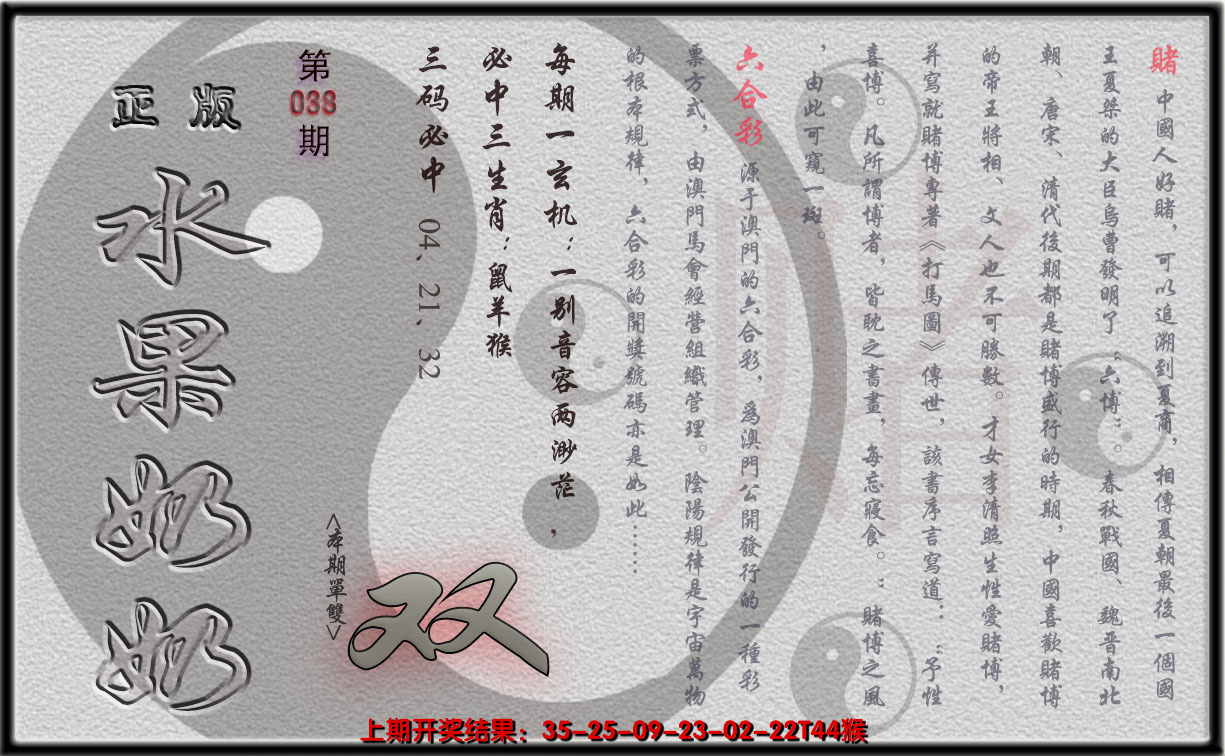 賭 中國人好賭，可以追溯到夏商，相傳夏朝最後一個國
王夏桀的大臣烏曹發明了“六博”。春秋戰國、魏晋南北
朝、唐宋、清代後期都是賭博盛行的時期，中國喜歡賭博
的帝王將相、文人也不可勝數。才女李清照生性愛賭博，
并寫就賭博專著《打馬圖》傳世，該書序言寫道：“予性
喜博。凡所謂博者，皆耽之書畫，每忘寢食。：賭博之風
，由此可窺一斑。
六合彩 源于澳門的六合彩，爲澳門公開發行的一種彩
票方式，由澳門馬會經營組織管理。陰陽規律是宇宙萬物
的根本規律，六合彩的開獎號碼亦是如此……
每期一玄机：一别音容两渺茫，
必中三生肖：鼠羊猴
三码必中 04、21、32
<本期單雙>
双
第
038
期
正版
水果奶奶
賭
上期开奖结果：35-25-09-23-02-22T44猴